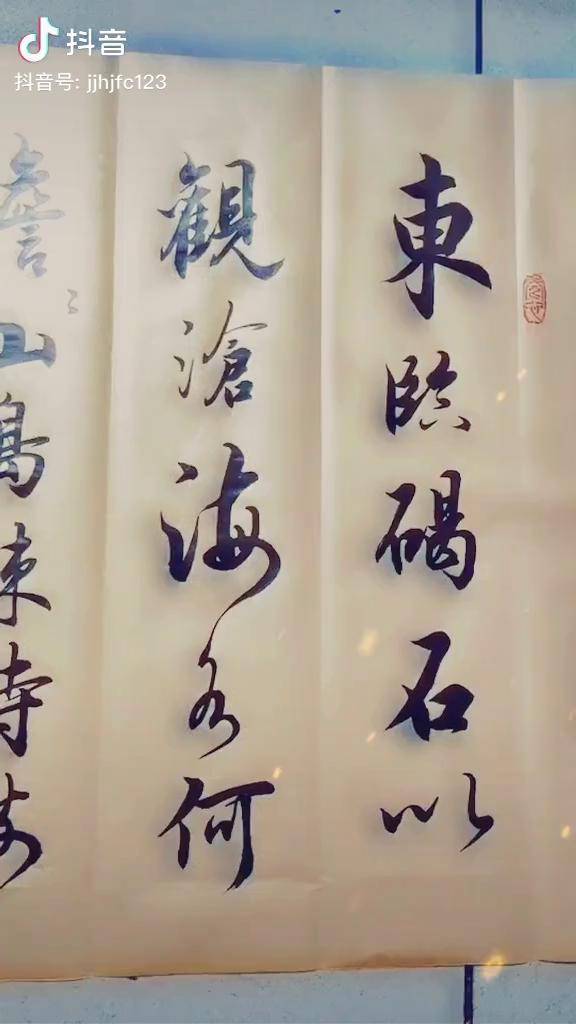 抖音
抖音号: jjhjfc123
東臨碣石以
觀滄海水何
澹〻山島竦峙